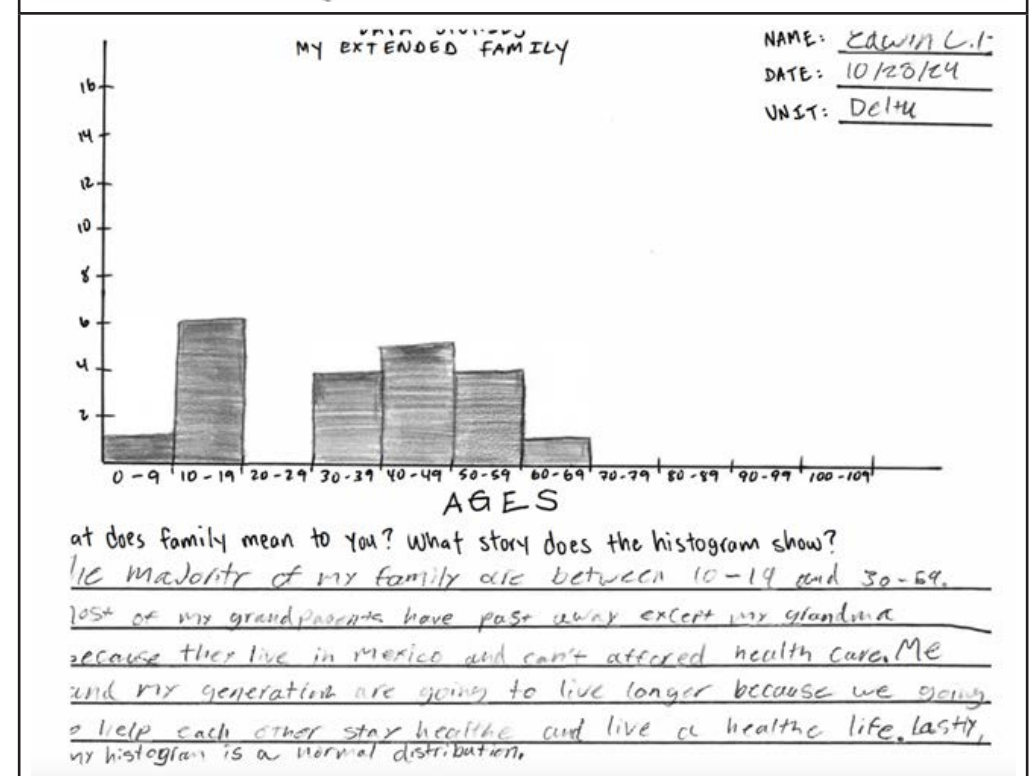 MY EXTENDED FAMILY
NAME: Edwin
DATE: 10/28/24
UNIT: Delta
16
14
12
10
8
6
4
2
0-9 10-19 20-29 30-39 40-49 50-59 60-69 70-79 80-89 90-99 100-109
AGES
at does family mean to you? What story does the histogram show?
majority of my family are between 10-19 and 30-59.
of my grandparents have past away except my grandma
because they live in Mexico and can't affored health care. Me
and my generation are going to live longer because we going
help each other stay healthe and live a healthe life. Lastly,
my histogram is a normal distribution.